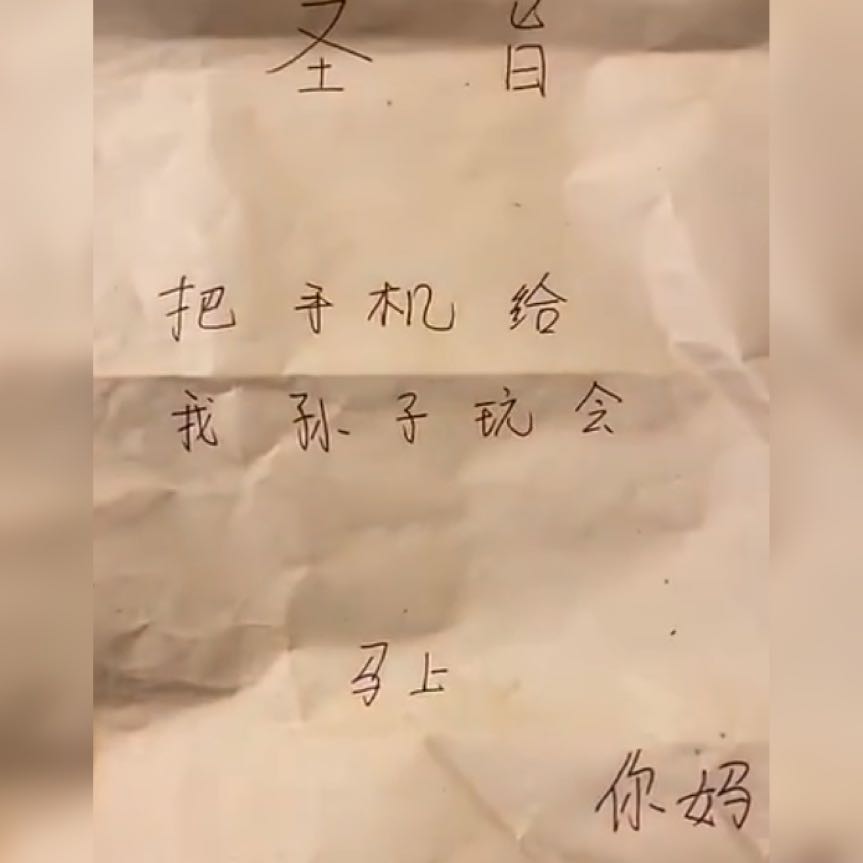 圣旨
把手机给
我孙子玩会
马上
你妈